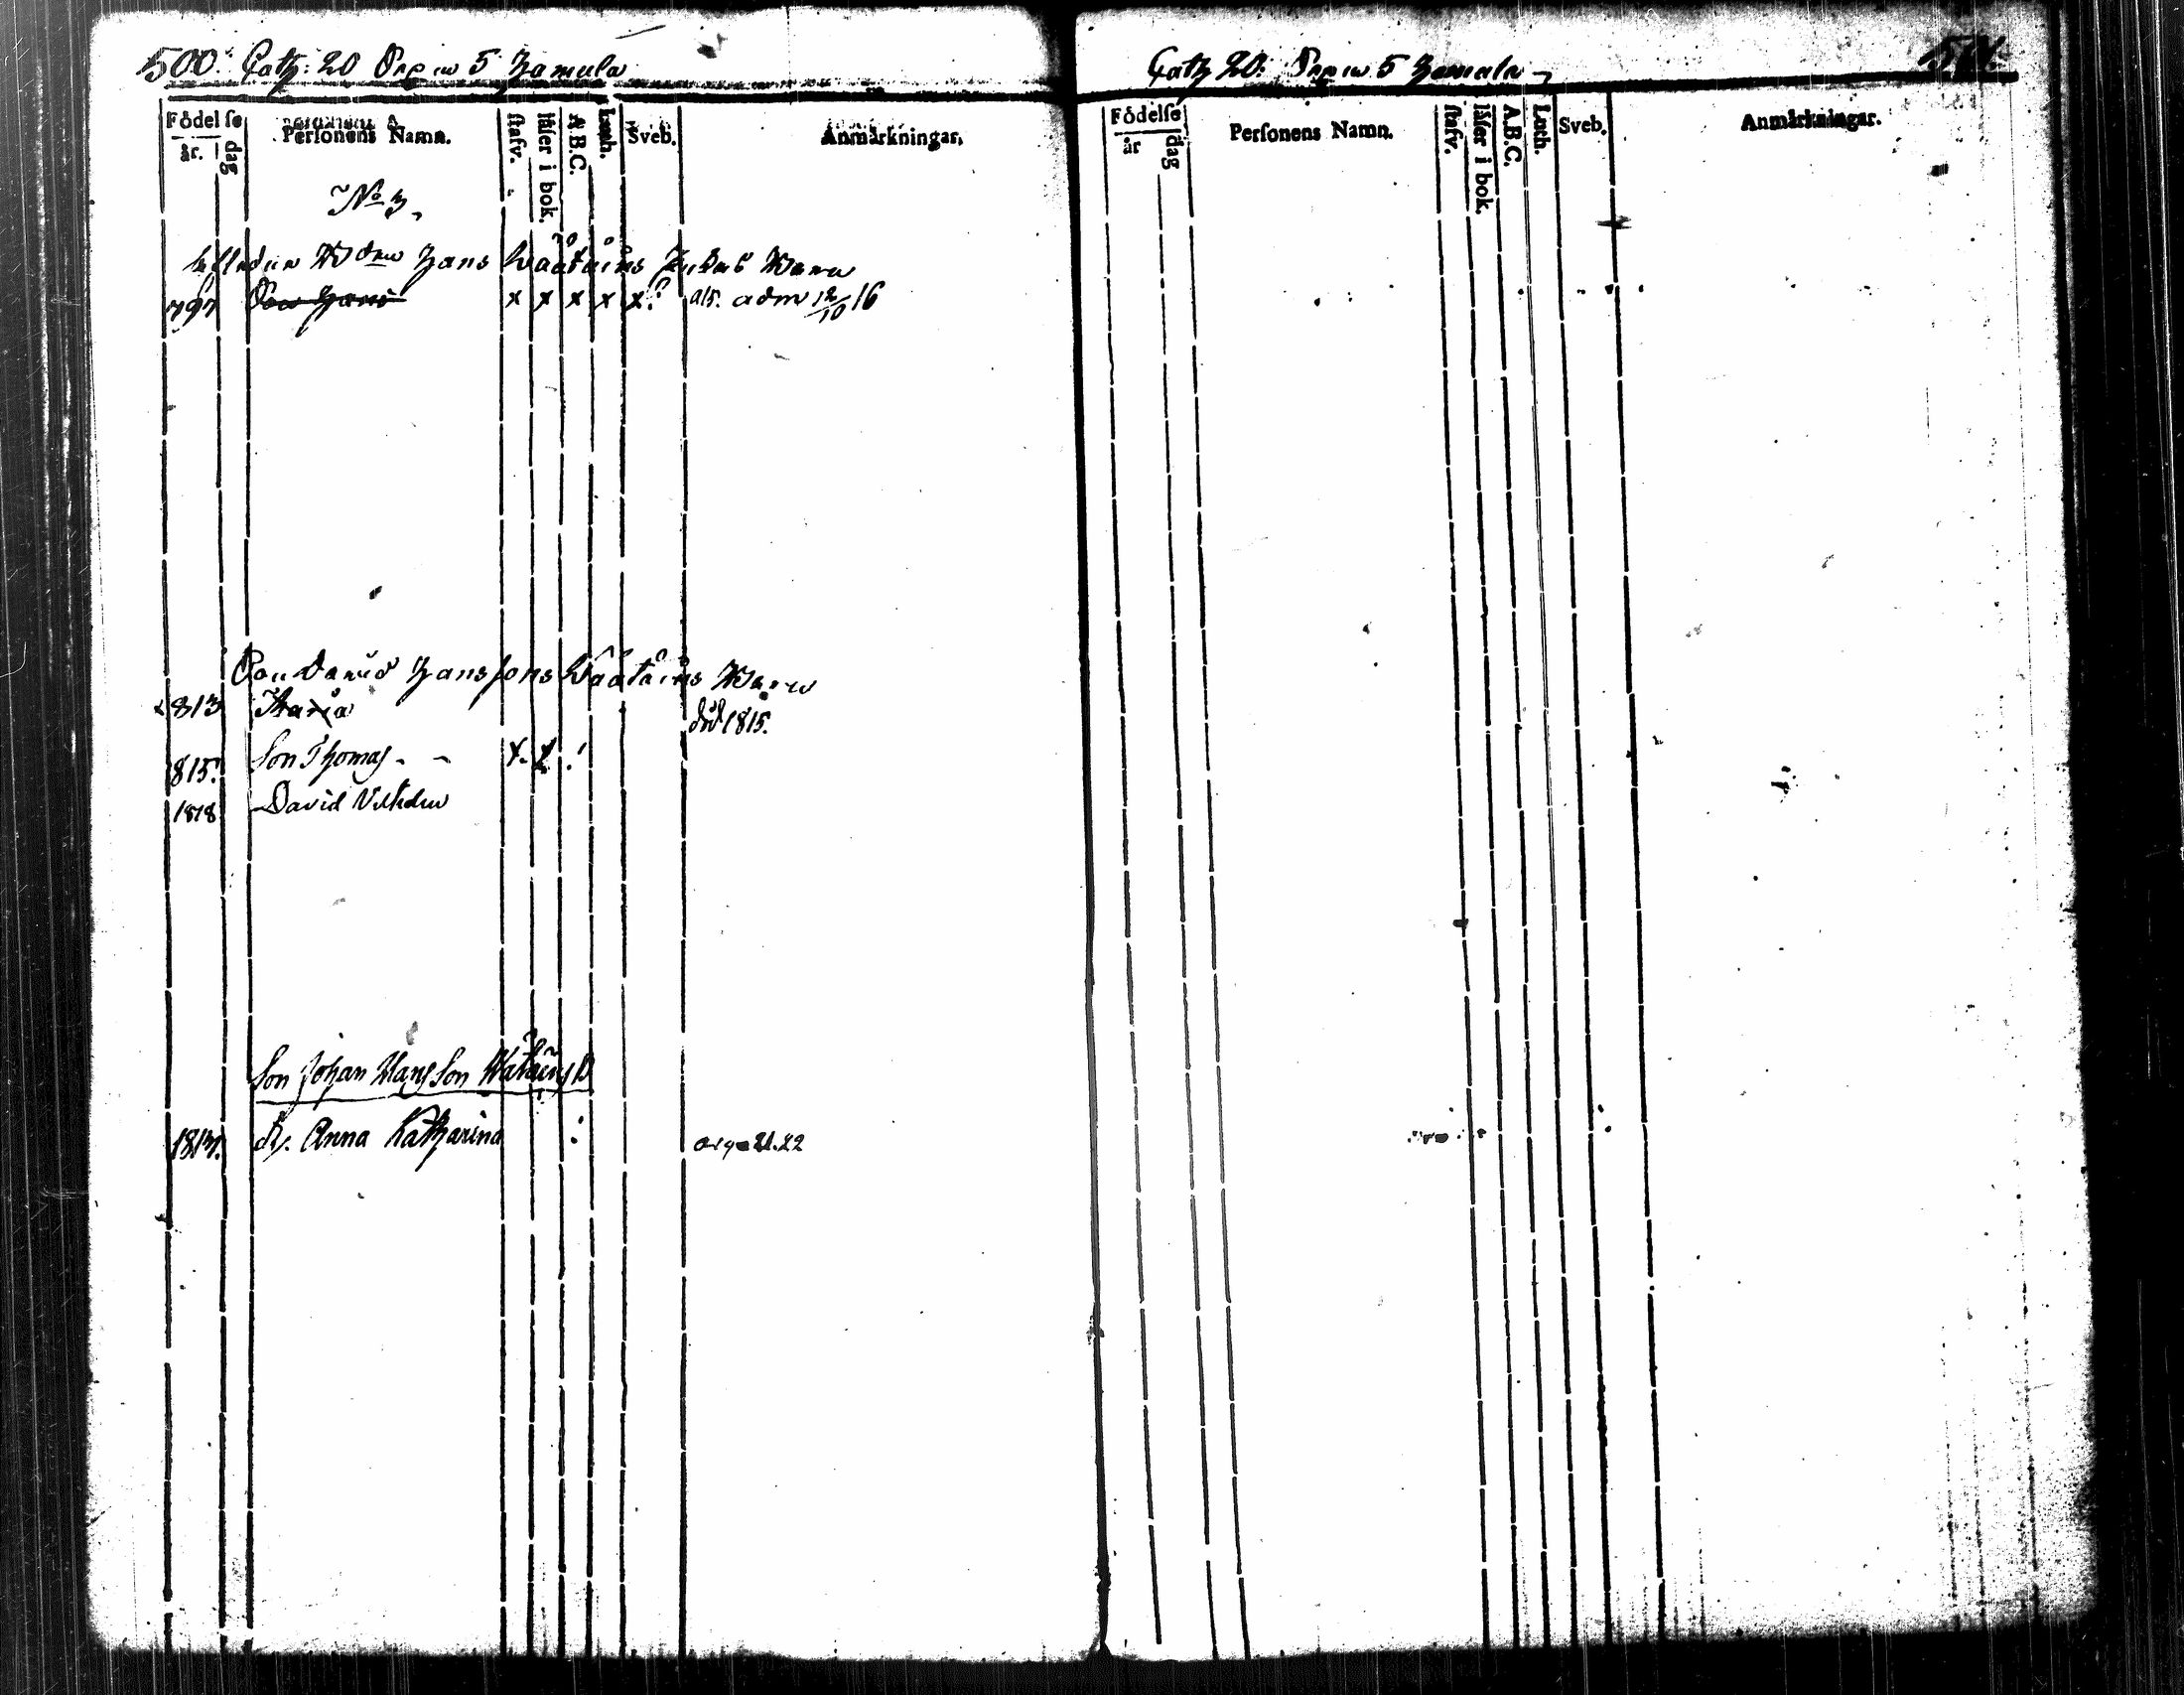 500. Cath: 20 5 Hamula
Födelse
år. dag
Personens Namn.
stafv.
läser i bok.
A.B.C.
Luth.
Sveb.
Anmärkningar.
No 3.
Hans Wäätäins Barn
797 Son Hans x x x x x? a15. adm 12/10 16
Son David Hanssons Wäätäins Barn
813 Maria död 1815.
815. Son Thomas - - x. x !
1818 David Vilhelm
Son Johan Hansson Wätäins B
1813. D. Anna Katharina : 21.22
Cath 20: 5 Hamula
Födelse
år dag
Personens Namn.
stafv.
läser i bok.
A.B.C.
Luth.
Sveb.
Anmärkningar.